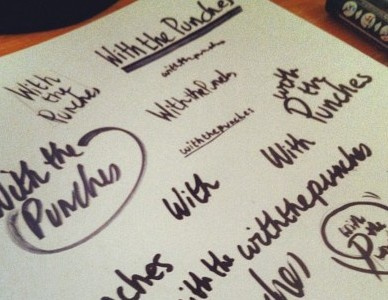 With the Punches
with the punches
With
the
Punches
With the Punches
with the punches
with
D the
Punches
With the
Punches
With
With
with the
with the punches
with
D the
Pun
nches
ches